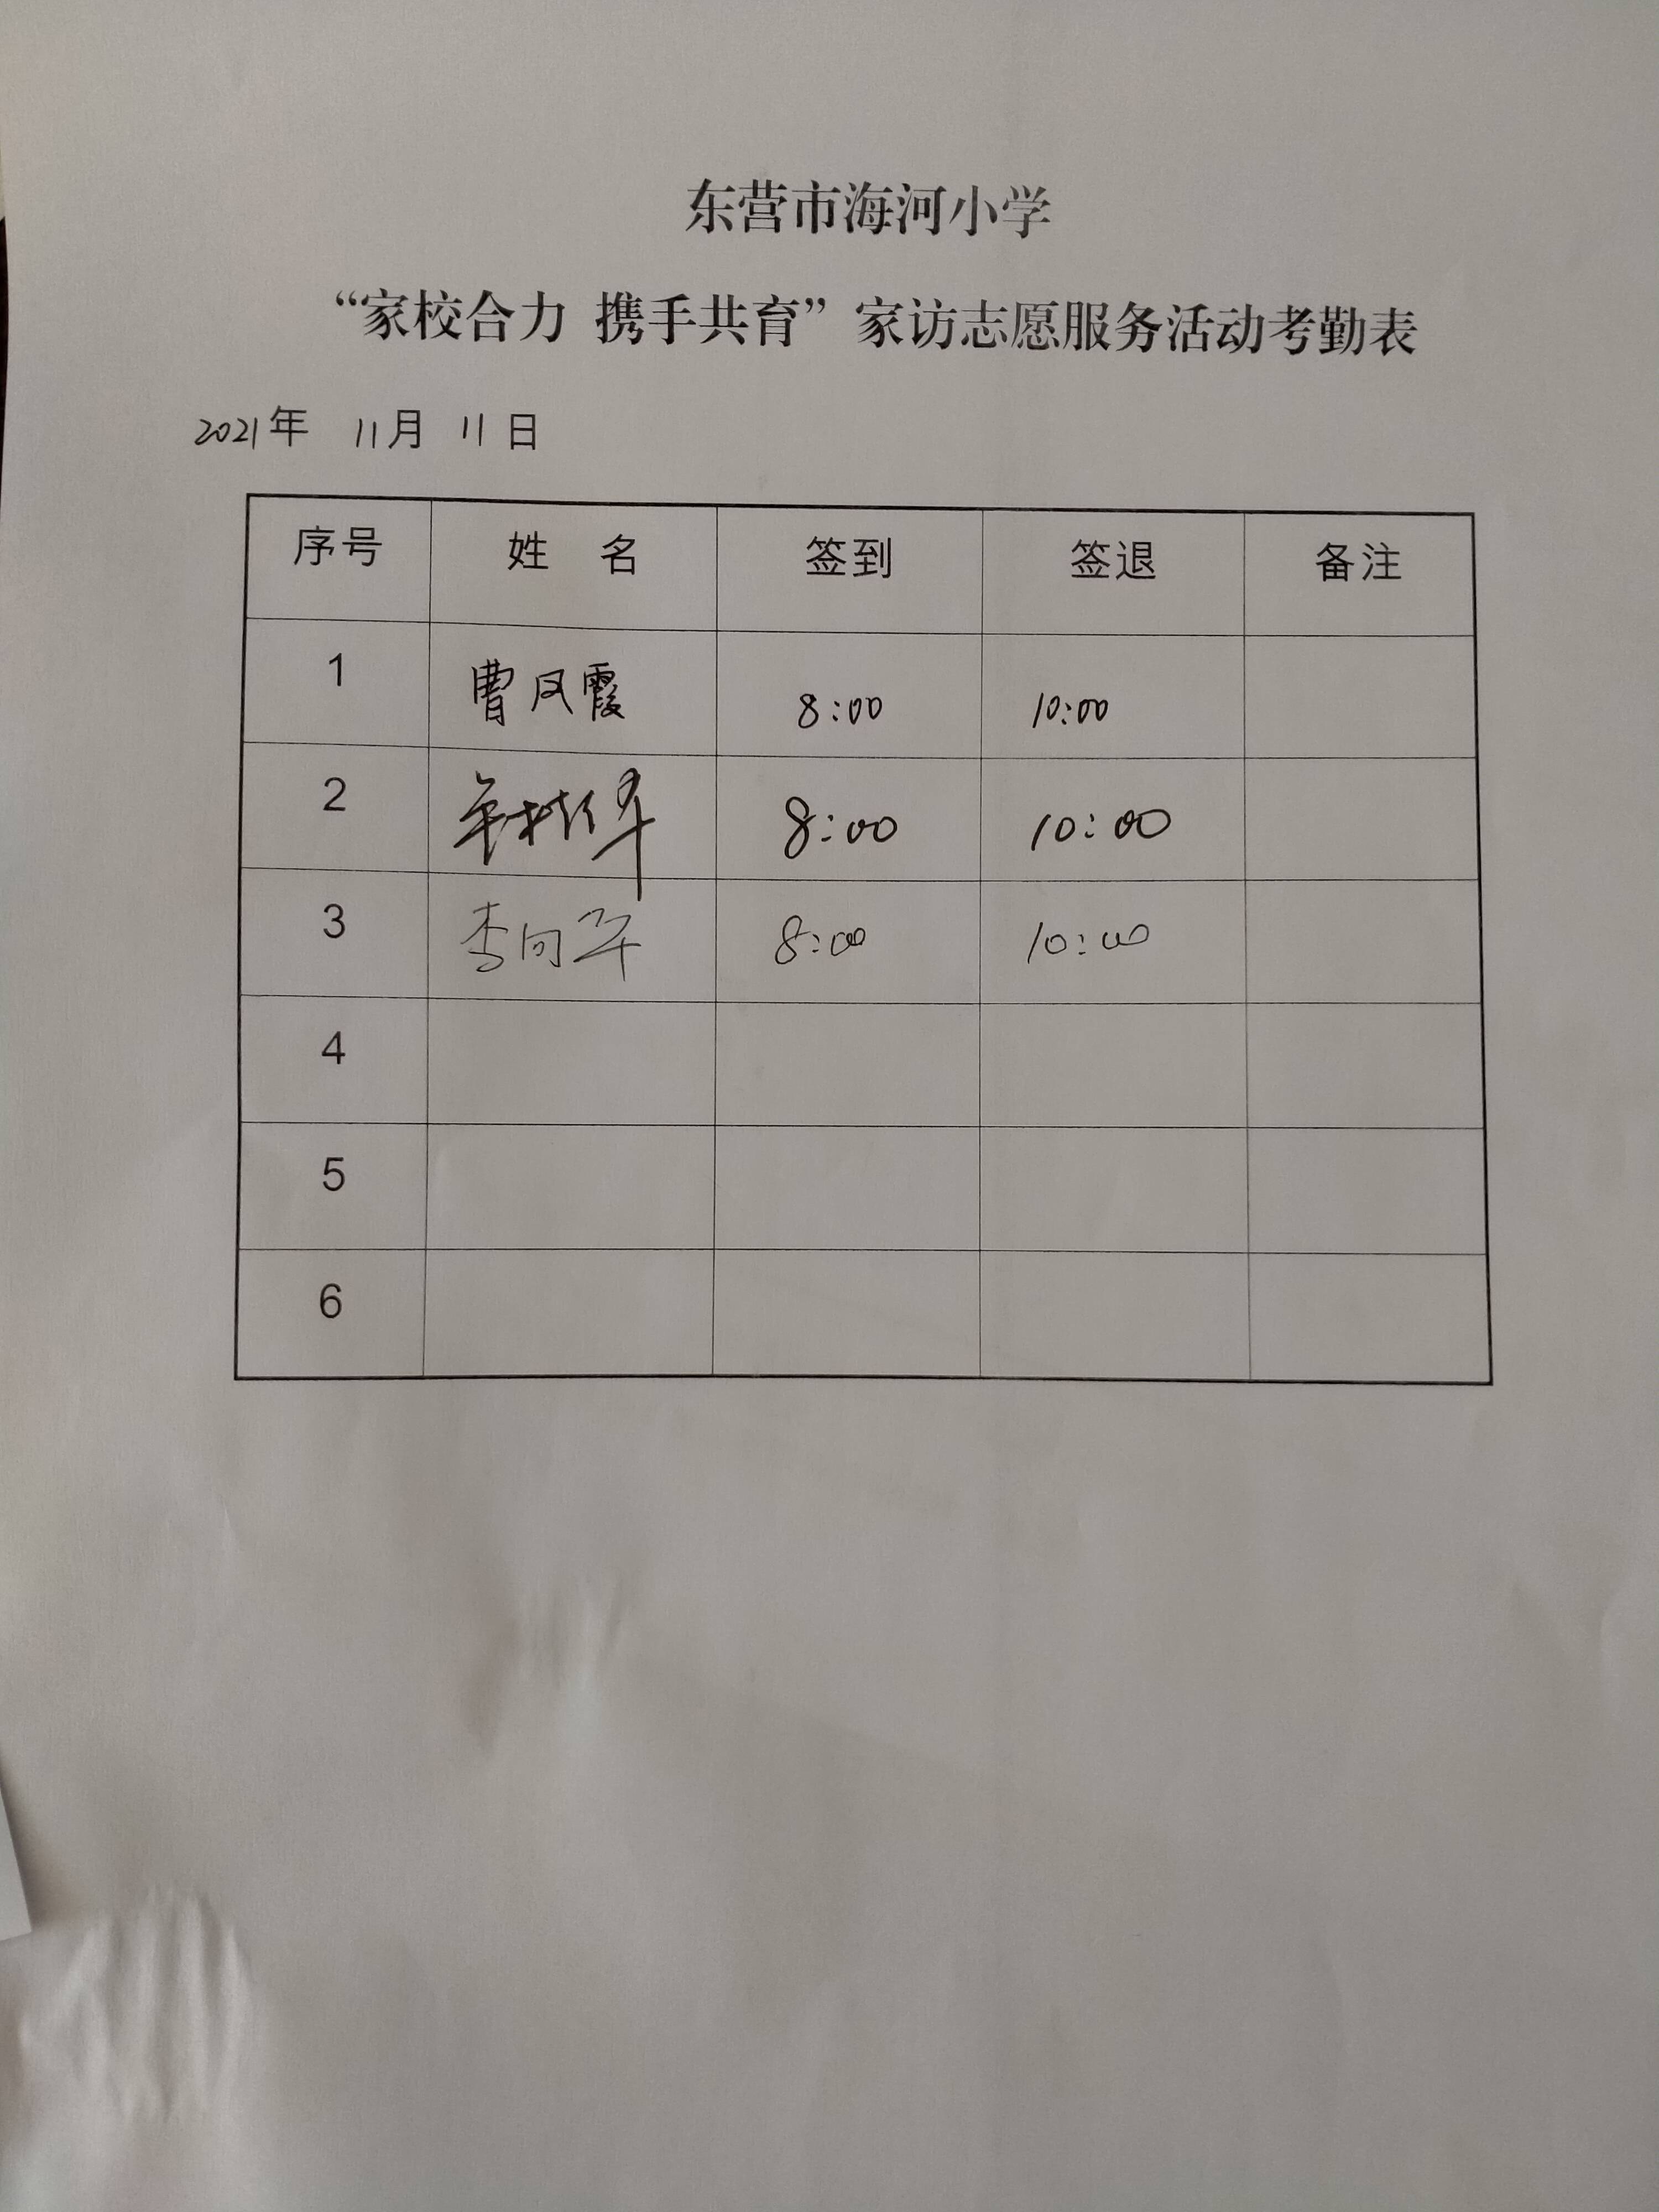 东营市海河小学
“家校合力 携手共育”家访志愿服务活动考勤表
2021年 11月 11日
序号 姓 名 签到 签退 备注
1 曹凤霞 8:00 10:00
2 8:00 10:00
3 李向军 8:00 10:00
4
5
6